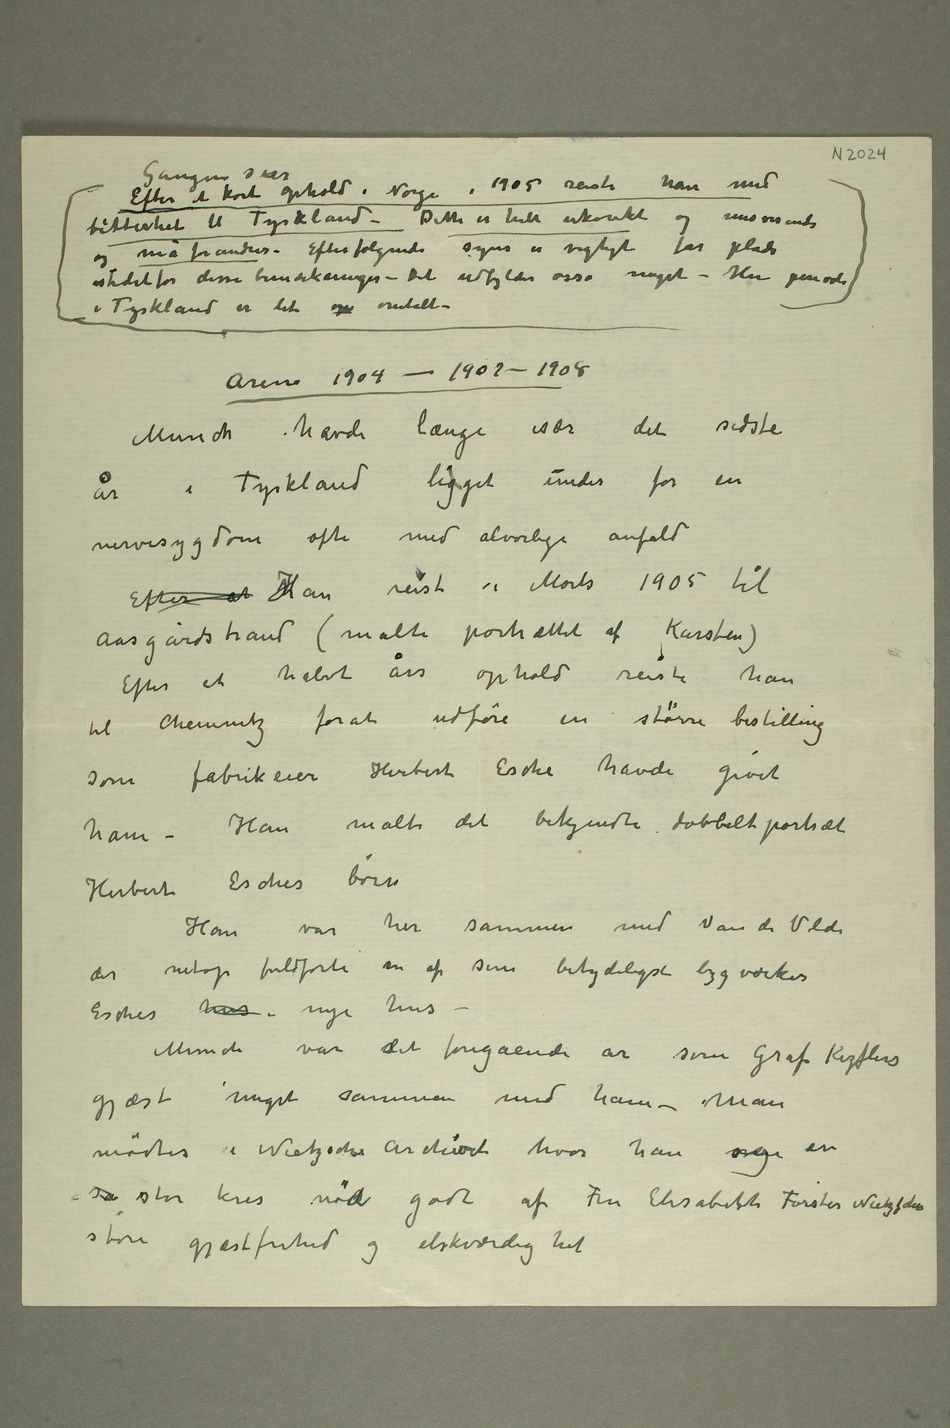 N 2024
Gangen sier
Efter et kort ophold i Norge i 1905 reiste han med
bitterhet til Tyskland – Dette er helt ukorekt og misvisende
og må forandres – Efterfølgende synes er vigtigt får plads
istedetfor disse bemærkninger – Det udfylder osså noget – Hin periode
i Tyskland er lit omtalt –
Årene 1904 — 1907 – 1908
Munch havde længe især det sidste
år i Tyskland ligget under for en
nervesygdom ofte med alvorlige anfald
Efter at Han reist i Marts 1905 til
Aasgårdstrand (malte portrættet af Karsten)
Efter et halvt års ophold reiste han
til Chemnitz forat udføre en større bestilling
som fabrikeier Herbert Esche havde givet
ham – Han malte det bekjendte dobbeltportræt
Herbert Esches børn
Han var her sammen med Van de Velde
der netop fuldførte en af sine betydeligste bygværker
Esches hus i nye hus –
Munch var det foregående år som Graf Kezslers
gjæst meget sammen med ham – Man
mødtes i Nietzsche Archivet hvor han og en
så stor kres nød godt af Fru Elisabeth Förster Nietzsches
store gjæstfrihed og elskværdighet